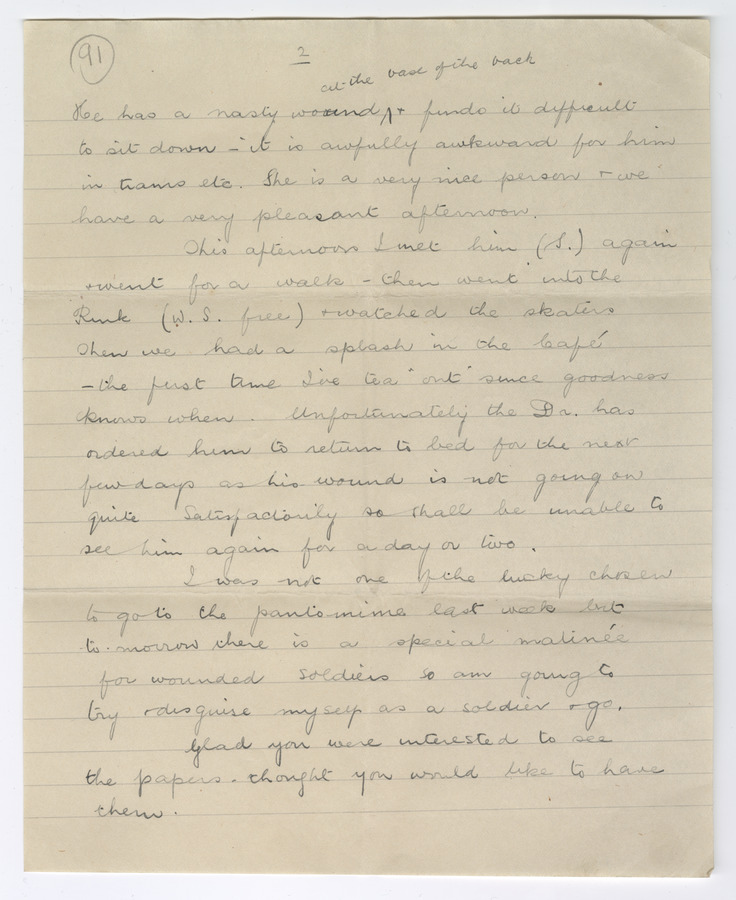 91
2
at the base of the back
He has a nasty wound ∧ + finds it difficult
to sit down – it is awfully awkward for him
in trams etc. She is a very nice person + we
have a very pleasant afternoon.
This afternoon I met him (S.) again
+ went for a walk – then went into the
Rink (W.S. free) + watched the skaters
Then we had a splash in the Café
– the first time I've tea "out" since goodness
knows when. Unfortunately the Dr. has
ordered him to return to bed for the next
few days as his wound is not going on
quite satisfactorily so shall be unable to
see him again for a day or two.
I was not one of the lucky chosen
to go to the pantomime last week but
to-morrow there is a special matinée
for wounded soldiers so am going to
try + disguise myself as a soldier + go.
Glad you were interested to see
the papers - thought you would like to have
them.